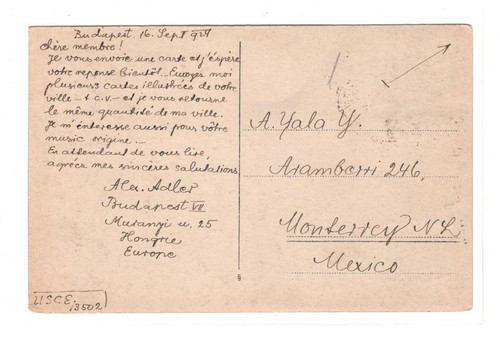 Budapest. 16. Sept 924
Chère membre!
Je vous envoie une carte et j'éspère
votre reponse bientôt... Envoyez moi
plusieurs cartes illustrées de votre
ville - t.c.v. - et je vous retourne
le même quantité de ma ville.
Je m'interesse aussi pour vôtre
music origine...
En attendant de vous lise,
agréer mes sincères salutations
Alex. Adler
Budapest VII
Muranyi u. 25
Hongrie
Europe
A. Yala Y.
Aramberri 246,
Monterrey N.L.
Mexico
USCE. 13502